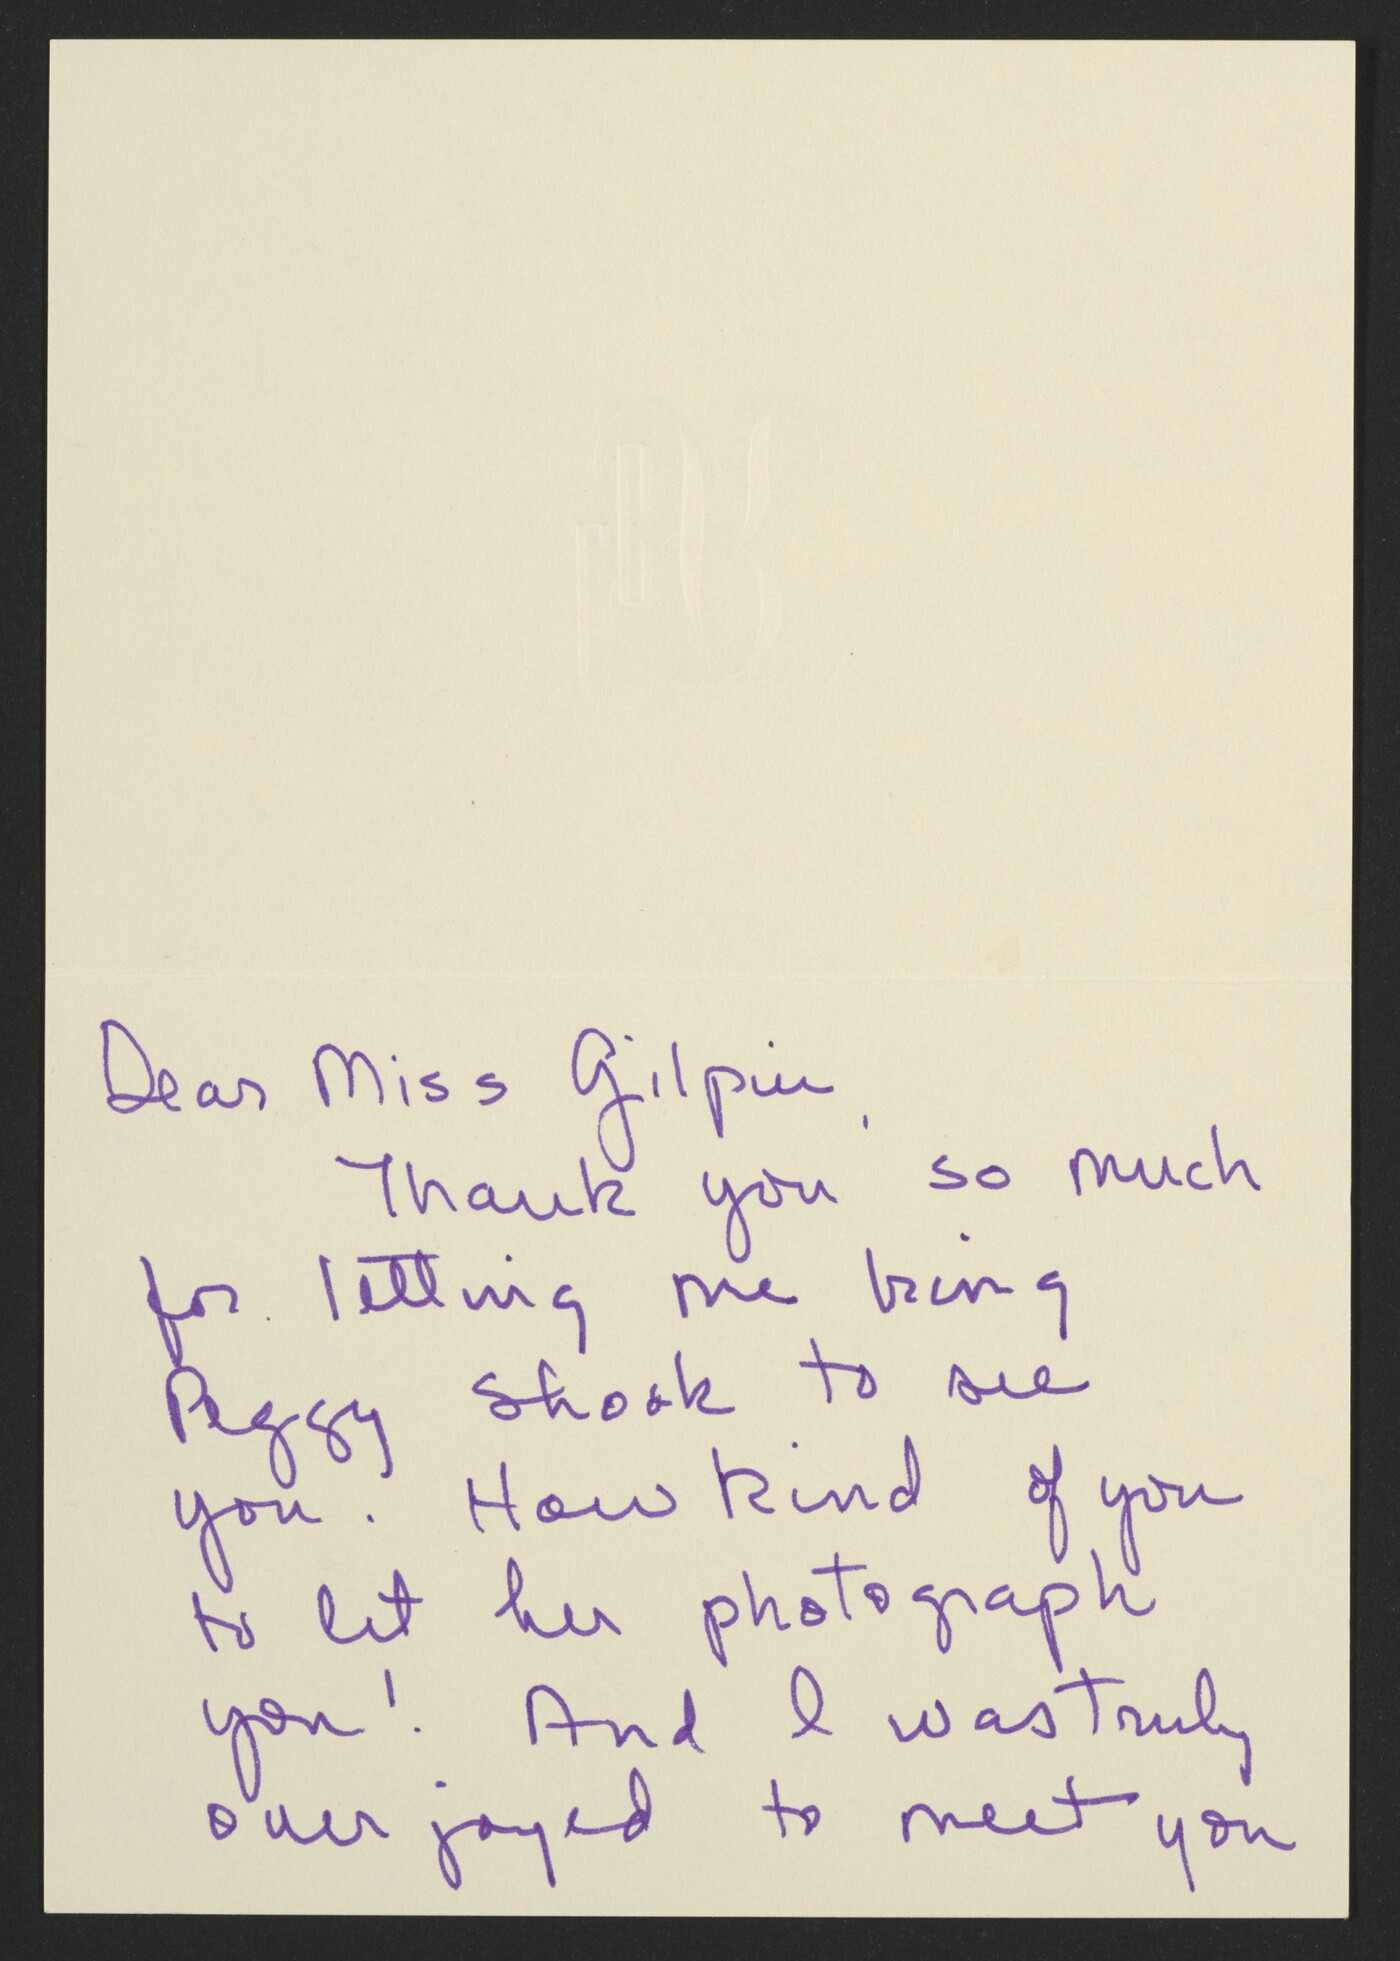 Dear Miss Gilpin,
Thank you so much
for letting me bring
Peggy Shook to see
you. How kind of you
to let her photograph
you! And I was truly
overjoyed to meet you